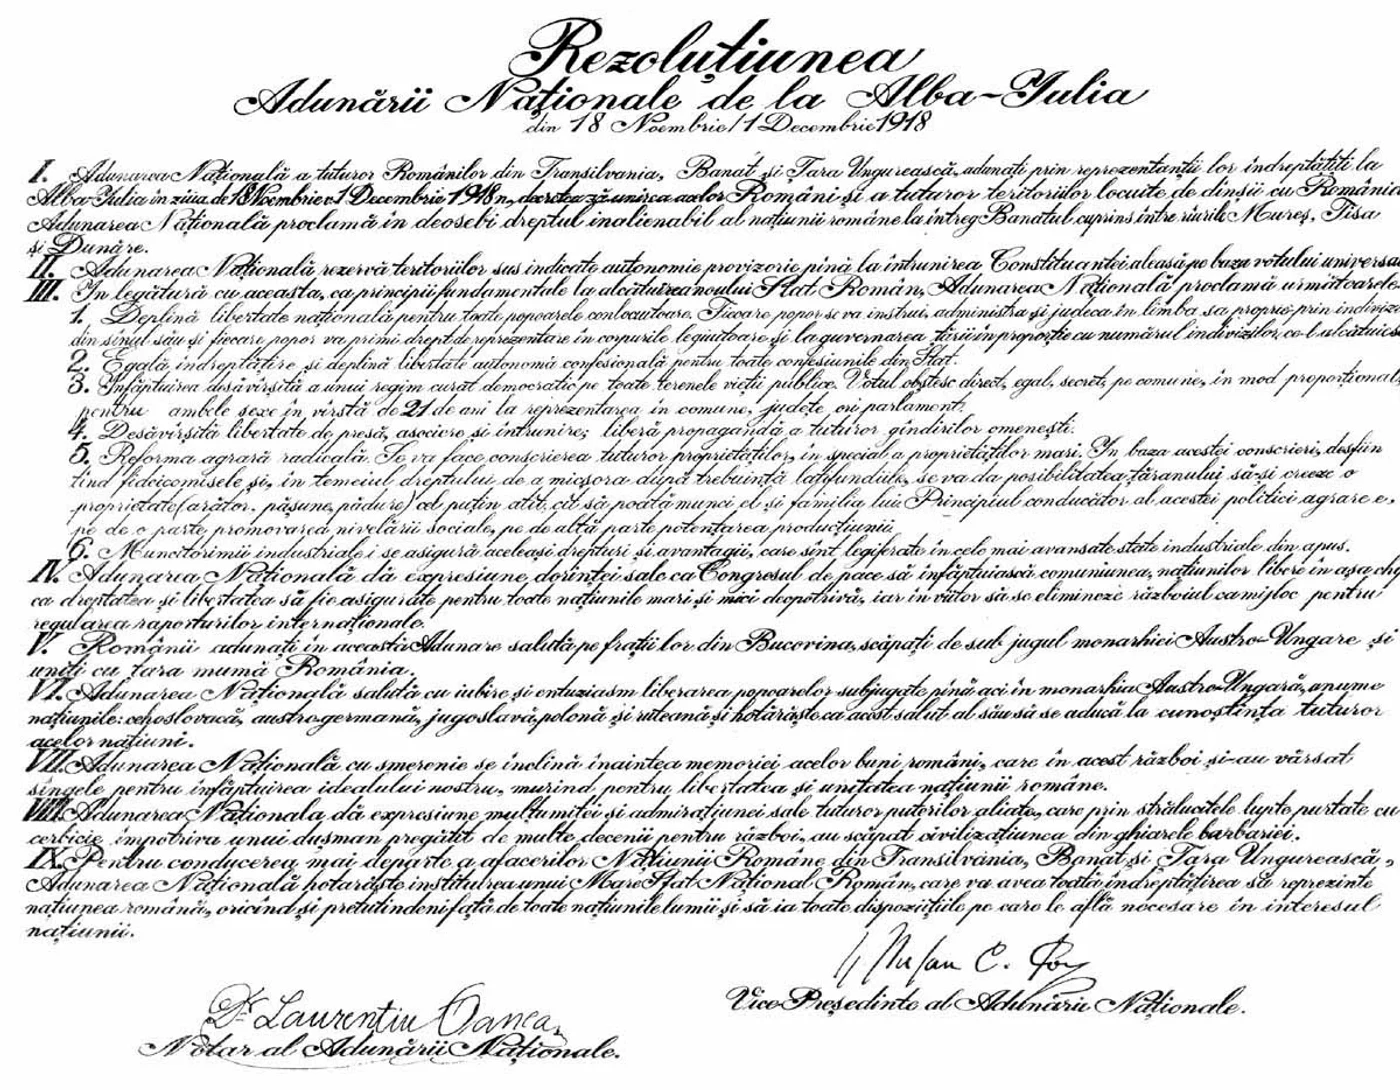 Rezoluțiunea
Adunării Naționale de la Alba-Iulia
din 18 Noembrie/1 Decembrie 1918
I. Adunarea Națională a tuturor Românilor din Transilvania, Banat și Țara Ungurească, adunați prin reprezentanții lor îndreptățiți la
Alba-Iulia în ziua de 18 Noembrie v. 1 Decembrie 1918 n., decretează unirea acelor Români și a tuturor teritoriilor locuite de dînșii cu România
Adunarea Națională proclamă în deosebi dreptul inalienabil al națiunii române la întreg Banatul cuprins între rîurile Mureș, Tisa
și Dunăre.
II. Adunarea Națională rezervă teritoriilor sus indicate autonomie provizorie pînă la întrunirea Constituantei aleasă pe baza votului universal
III. În legătură cu aceasta, ca principii fundamentale la alcătuirea noului Stat Român, Adunarea Națională proclamă următoarele
1. Deplină libertate națională pentru toate popoarele conlocuitoare. Fiecare popor se va instrui, administra și judeca în limba sa proprie prin indivizi
din sînul său și fiecare popor va primi drept de reprezentare în corpurile legiuitoare și la guvernarea țării în proporție cu numărul indivizilor ce-l alcătuiesc
2. Egală îndreptățire și deplină libertate autonomă confesională pentru toate confesiunile din Stat.
3. Înfăptuirea desăvîrșită a unui regim curat democratic pe toate terenele vieții publice. Votul obștesc direct, egal, secret, pe comune, în mod proporțional,
pentru ambele sexe în vîrstă de 21 de ani la reprezentarea în comune, județe ori parlament.
4. Desăvîrșită libertate de presă, asociere și întrunire; liberă propagandă a tuturor gîndirilor omenești.
5. Reforma agrară radicală. Se va face conscrierea tuturor proprietăților, în special a proprietăților mari. În baza acestei conscrieri, desfiin
țînd fideicomisele și, în temeiul dreptului de a micșora după trebuință latifundiile, se va da posibilitatea țăranului să-și creeze o
proprietate (arător, pășune, pădure) cel puțin atît cît să poată munci el și familia lui Principiul conducător al acestei politici agrare e.
pe de o parte promovarea nivelării sociale, pe de altă parte potențarea producțiunii
6. Muncitorimii industriale i se asigură aceleași drepturi și avantagii, care sînt legiferate în cele mai avansate state industriale din apus.
IV. Adunarea Națională dă expresiune dorinței sale ca Congresul de pace să înfăptuiască comuniunea națiunilor libere în așa chip
ca dreptatea și libertatea să fie asigurate pentru toate națiunile mari și mici deopotrivă, iar în viitor să se elimineze războiul ca mijloc pentru
regularea raporturilor internaționale.
V. Românii adunați în această Adunare salută pe frații lor din Bucovina, scăpați de sub jugul monarhiei Austro-Ungare și
uniți cu țara mumă România.
VI. Adunarea Națională salută cu iubire și entuziasm liberarea popoarelor subjugate pînă aci în monarhia Austro-Ungară, anume
națiunile: cehoslovacă, austro-germană, jugoslavă, polonă și ruteană și hotărăște ca acest salut al său să se aducă la cunoștința tuturor
acelor națiuni.
VII. Adunarea Națională cu smerenie se înclină înaintea memoriei acelor buni români, care în acest război și-au vărsat
sîngele pentru înfăptuirea idealului nostru, murind pentru libertatea și unitatea națiunii române.
VIII. Adunarea Națională dă expresiune mulțumitei și admirațiunei sale tuturor puterilor aliate, care prin strălucitele lupte purtate cu
cerbicie împotriva unui dușman pregătit de multe decenii pentru război, au scăpat civilizațiunea din ghiarele barbariei.
IX. Pentru conducerea mai departe a afacerilor Națiunii Române din Transilvania, Banat și Țara Ungurească,
Adunarea Națională hotărăște instituirea unui Mare Sfat Național Român, care va avea toată îndreptățirea să reprezinte
națiunea română, oricînd și pretutindeni față de toate națiunile lumii și să ia toate dispozițiile pe care le află necesare în interesul
națiunii.
Vice-Președinte al Adunării Naționale.
Dr Laurențiu Oanea
Notar al Adunării Naționale.